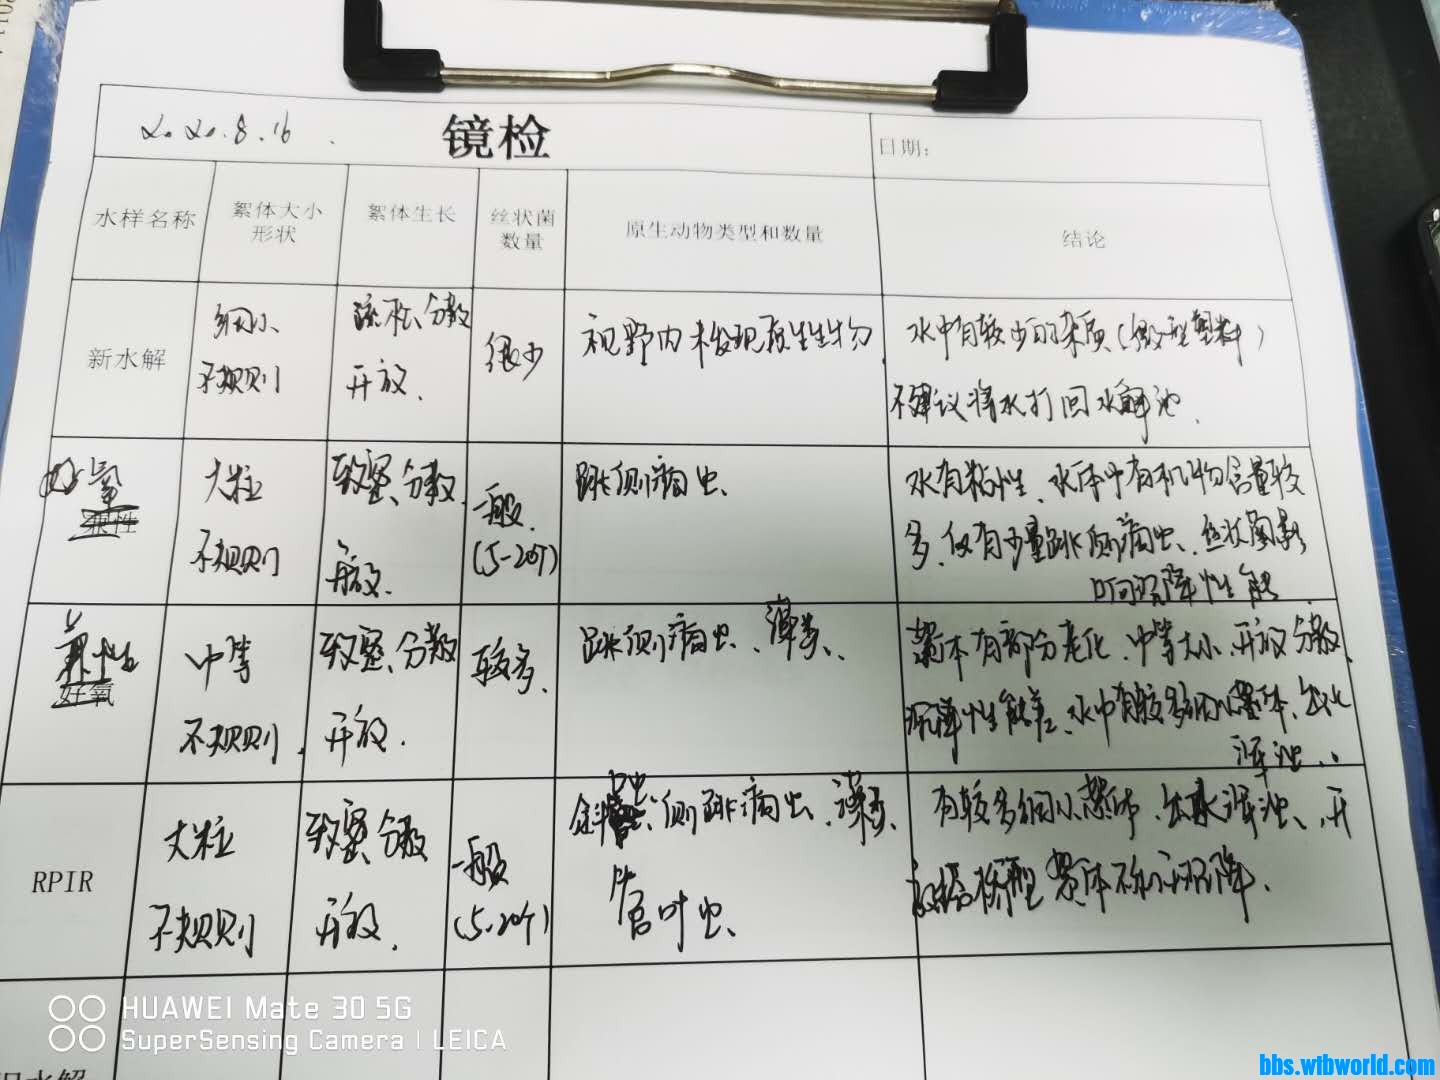 2020.8.16.
镜检
日期:
水样名称
絮体大小
形状
絮体生长
丝状菌
数量
原生动物类型和数量
结论
新水解
细小
不规则
疏松、分散
开放.
很少
视野内未发现原生生物.
水中有较少的杂质(微型塑料)
不建议将水打回水解池.
好氧
兼性
大粒
不规则
致密、分散.
开放.
一般.
(5-20个)
跳侧滴虫、
水有粘性、水体中有机物含量较
多、仅有少量跳侧滴虫、丝状菌影
响沉降性能
兼性
好氧
中等
不规则.
致密、分散
开放.
较多、
跳侧滴虫、藻类、
絮体有部分老化、中等大小、开放分散、
沉降性能差、水中有较多细小絮体、出水
浑浊、
RPIR
大粒
不规则
致密、分散
开放.
一般
(5-20个)
侧跳滴虫、藻类、
叶虫、
有较多细小絮体、出水浑浊、开
桥型絮体不利于沉降.
水解
HUAWEI Mate 30 5G
SuperSensing Camera | LEICA
bbs.wtbworld.com